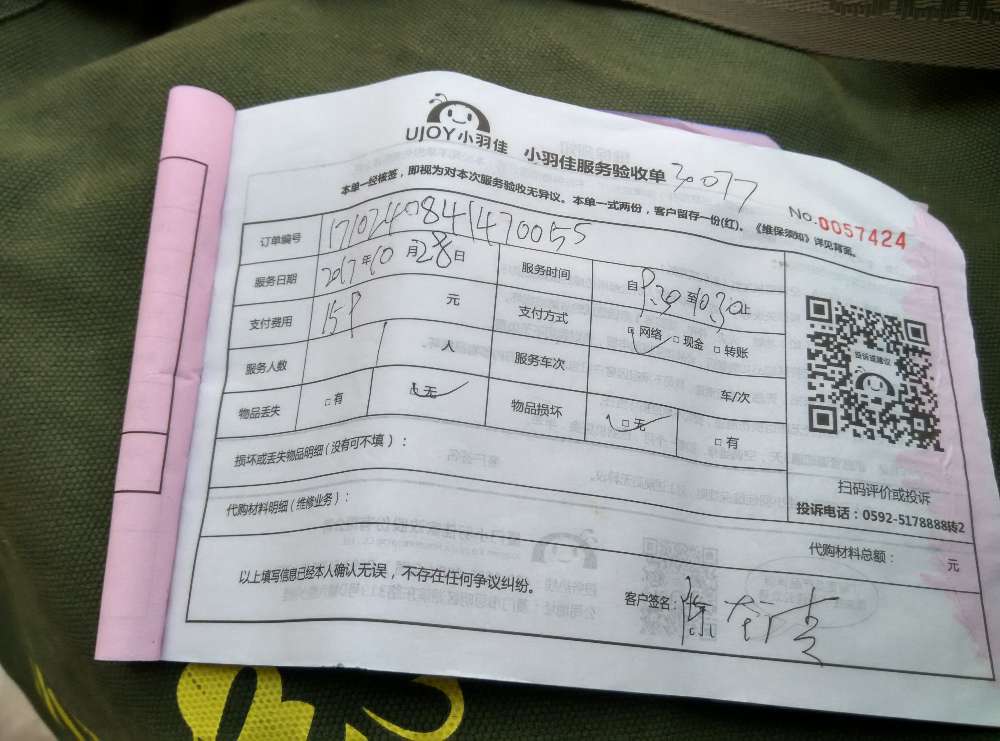 UJOY小羽佳 小羽佳服务验收单 30077
本单一经核签，即视为对本次服务验收无异议。本单一式两份，客户留存一份(红)。《维保须知》详见背面。
No.0057424
订单编号 1710240841470055
服务日期 2017年10月28日 服务时间 自9.30至10.30止
支付费用 元 支付方式 □网络 □现金 □转账
服务人数 人 服务车次 车/次
物品丢失 □有 □无 物品损坏 □无 □有
损坏或丢失物品明细（没有可不填）：
代购材料明细（维修业务）：
代购材料总额： 元
以上填写信息已经本人确认无误，不存在任何争议纠纷。
客户签名：陈
投诉或建议
扫码评价或投诉
投诉电话：0592-5178888转2